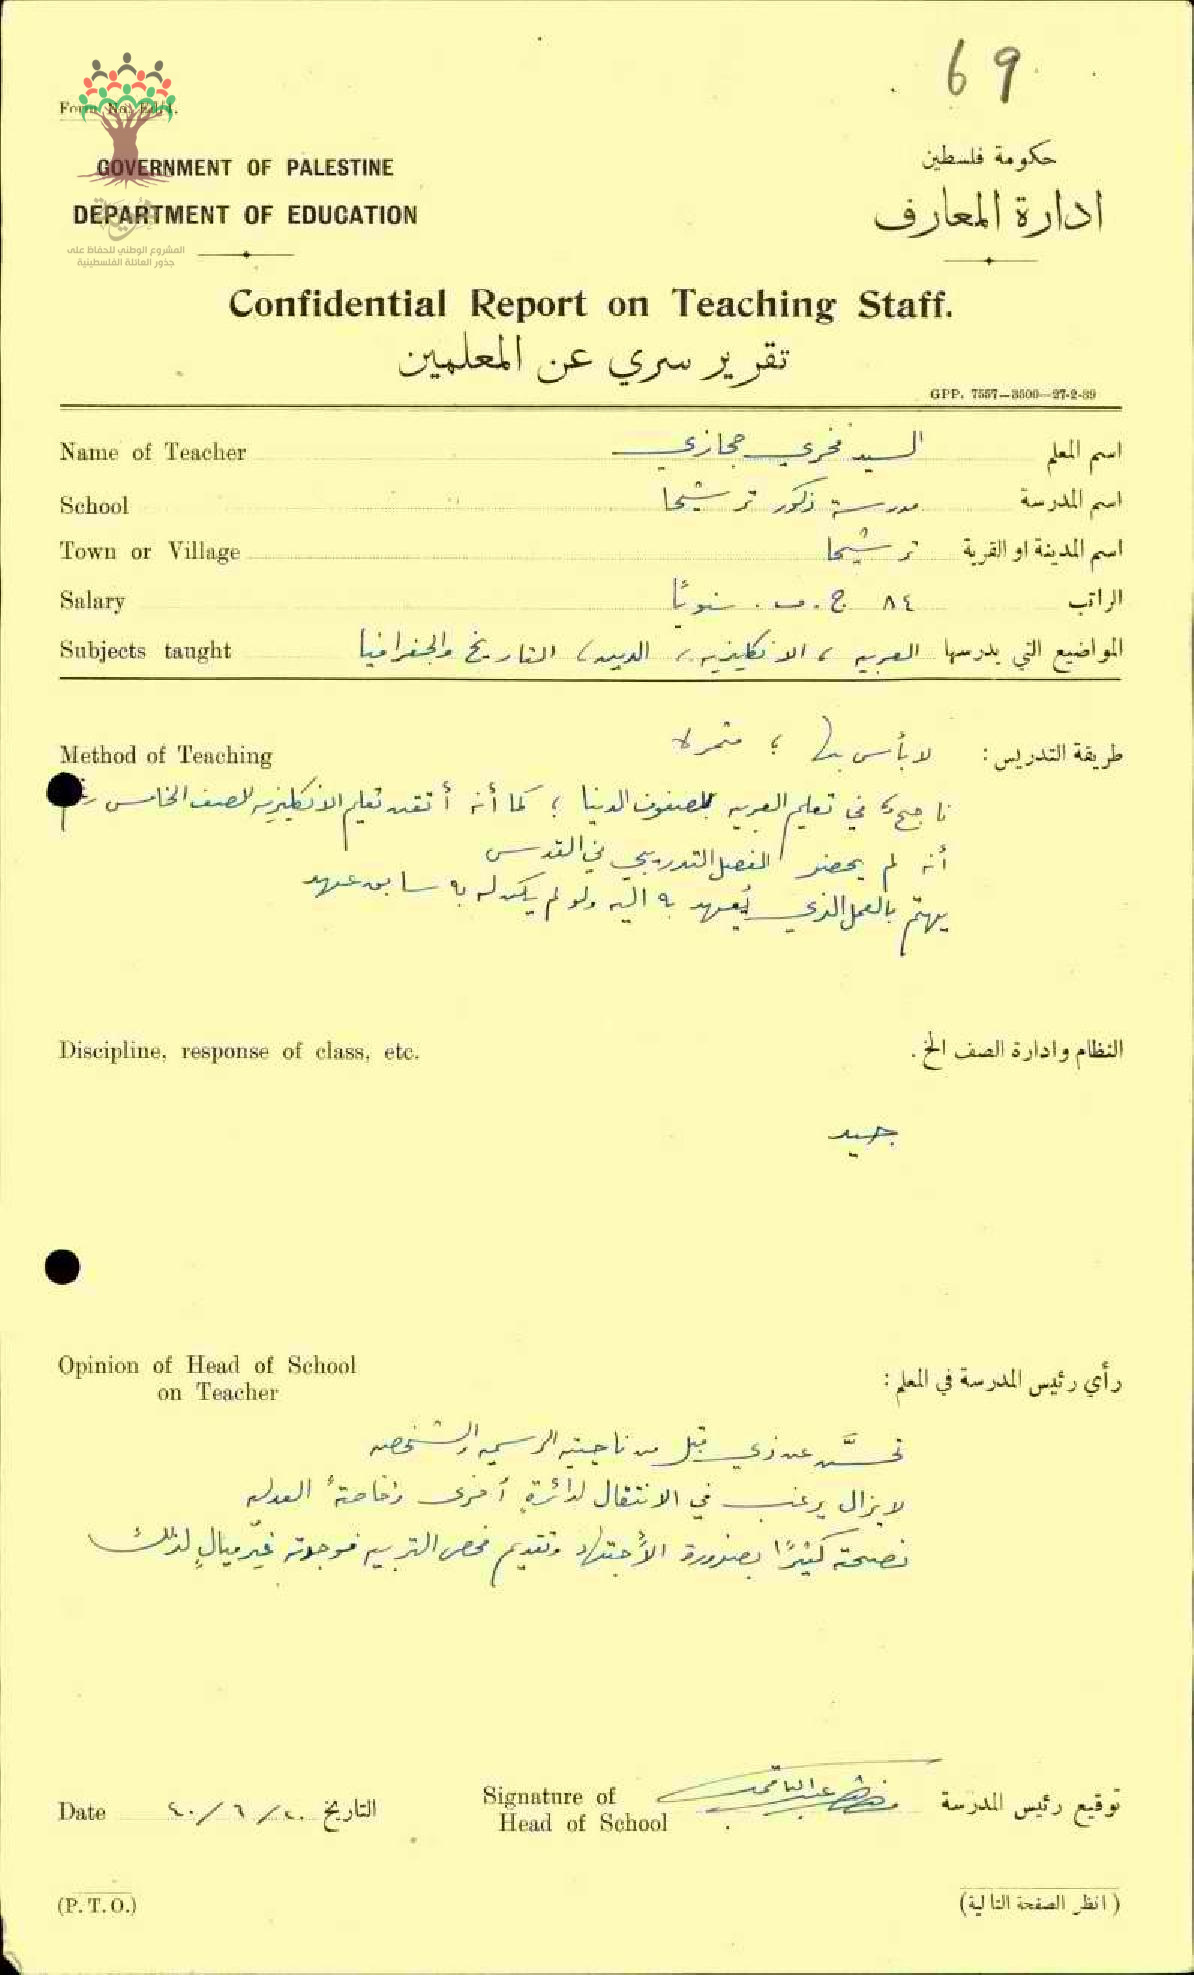 69
Form No. Ed/4.
GOVERNMENT OF PALESTINE
حكومة فلسطين
DEPARTMENT OF EDUCATION
ادارة المعارف
المشروع الوطني للحفاظ على
جذور العائلة الفلسطينية
Confidential Report on Teaching Staff.
تقرير سري عن المعلمين
GPP. 7557—3500—27-2-39
Name of Teacher السيد فخري حجازي اسم المعلم
School مدرسة ذكور ترشيحا اسم المدرسة
Town or Village ترشيحا اسم المدينة او القرية
Salary ٨٤ ج.ف. سنويًا الراتب
Subjects taught العربيه، الانكليزيه، الدين، التاريخ والجغرافيا المواضيع التي يدرسها
Method of Teaching طريقة التدريس: لا بأس بها ؛ مثمرة
ناجح في تعليم العربيه للصفوف الدنيا ؛ كما أنه أتقن تعليم الانكليزيه للصف الخامس رغم
أنه لم يحضر الفصل التدريبي في القدس
يهتم بالعمل الذي يُعهد به اليه ولو لم يكن له به سابق عهد
Discipline, response of class, etc. النظام وادارة الصف الخ.
جيد
Opinion of Head of School
on Teacher
رأي رئيس المدرسة في المعلم:
تحسَّن عن ذي قبل من ناحيتيه الرسميه والشخصيه
لا يزال يرغب في الانتقال لدائرةٍ أخرى وخاصةً العدليه
نصحته كثيرًا بضرورة الأجتهاد وتقديم فحص التربيه فوجدته غير ميالٍ لذلك
Signature of
Head of School
توقيع رئيس المدرسة
Date ٤٠/٦/٢٠ التاريخ
(P. T. O.) (انظر الصفحة التالية)